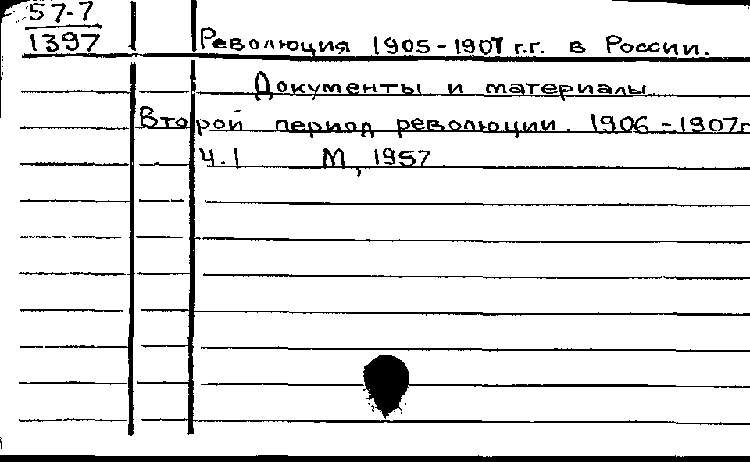 57-7
1397
Революция 1905-1907 г.г. в России.
Документы и материалы
Второй период революции. 1906-1907г
Ч.1 М, 1957